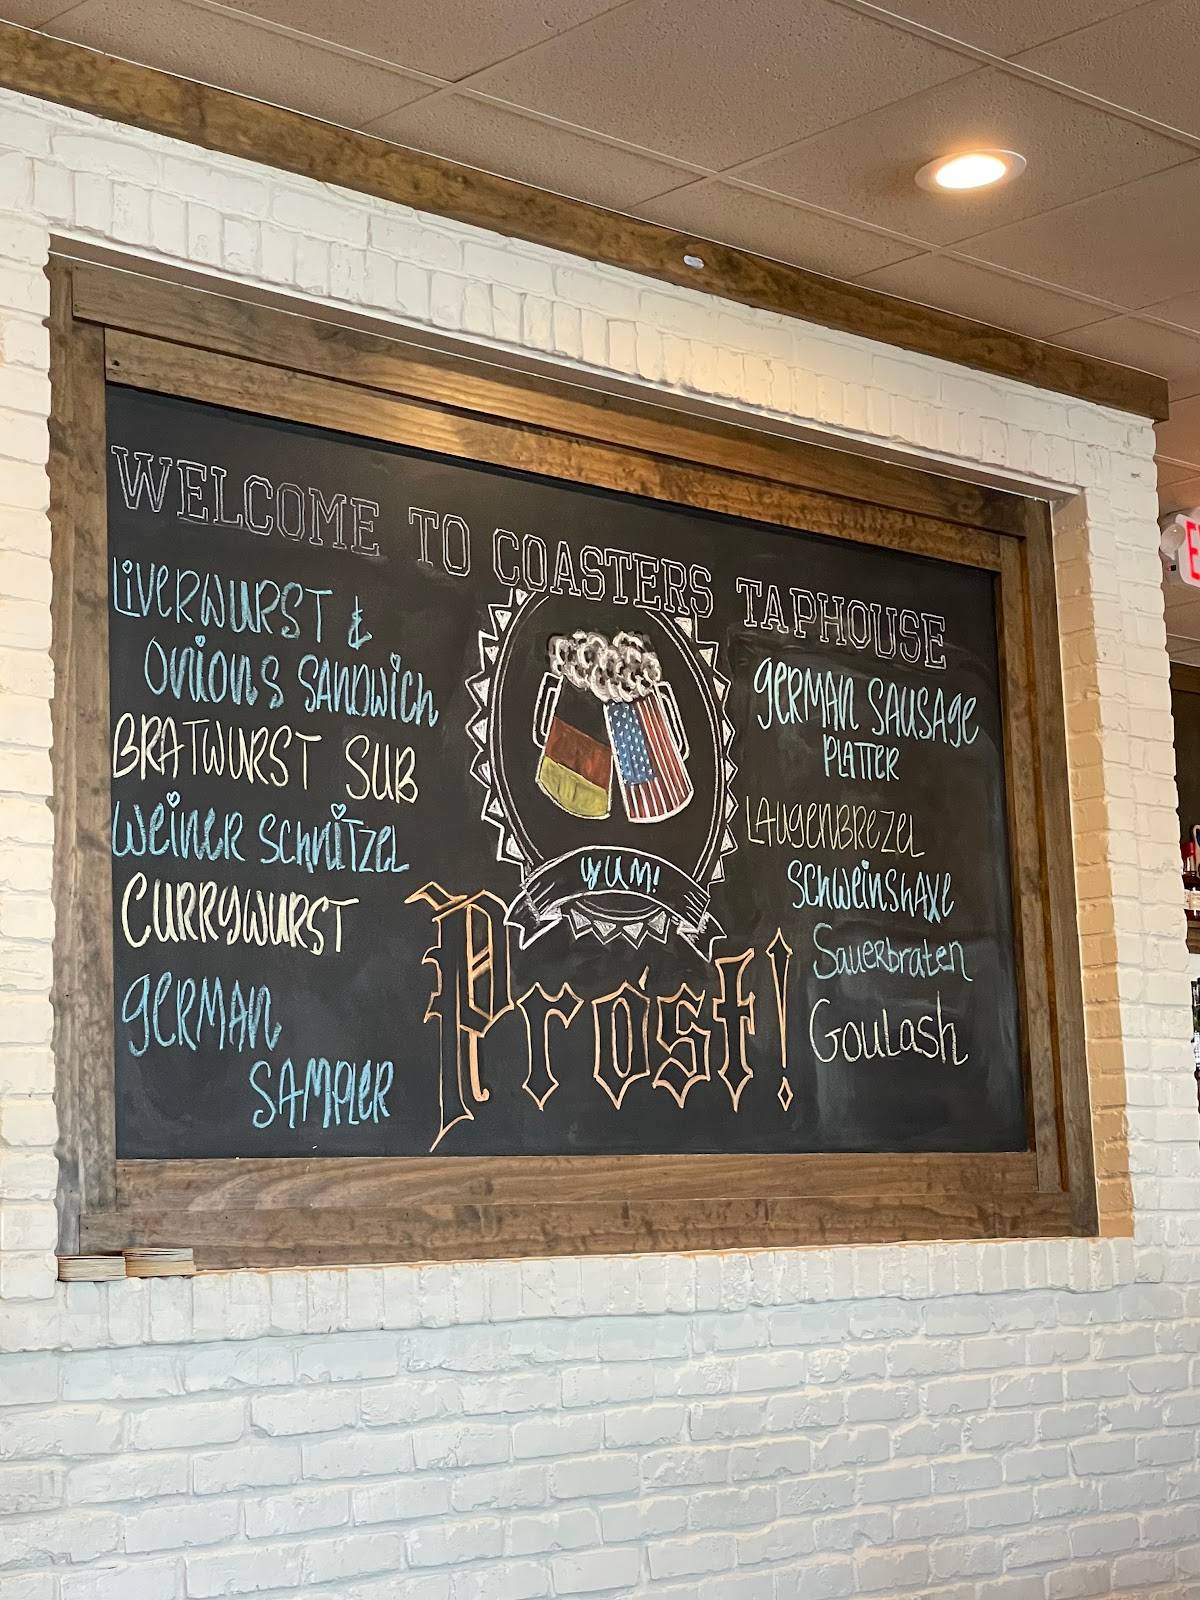 WELCOME TO COASTERS TAPHOUSE
LiVERWURST &
ONiONS SANDWiCH
BRATWURST SUB
WeiNeR SCHNiTZEL
CURRYWURST
GERMAN
SAMPLER
YUM!
Prost!
GERMAN SAUSAGE
PLATTER
LAUGENBREZEL
SCHWEiNSHAXE
Sauerbraten
Goulash
E